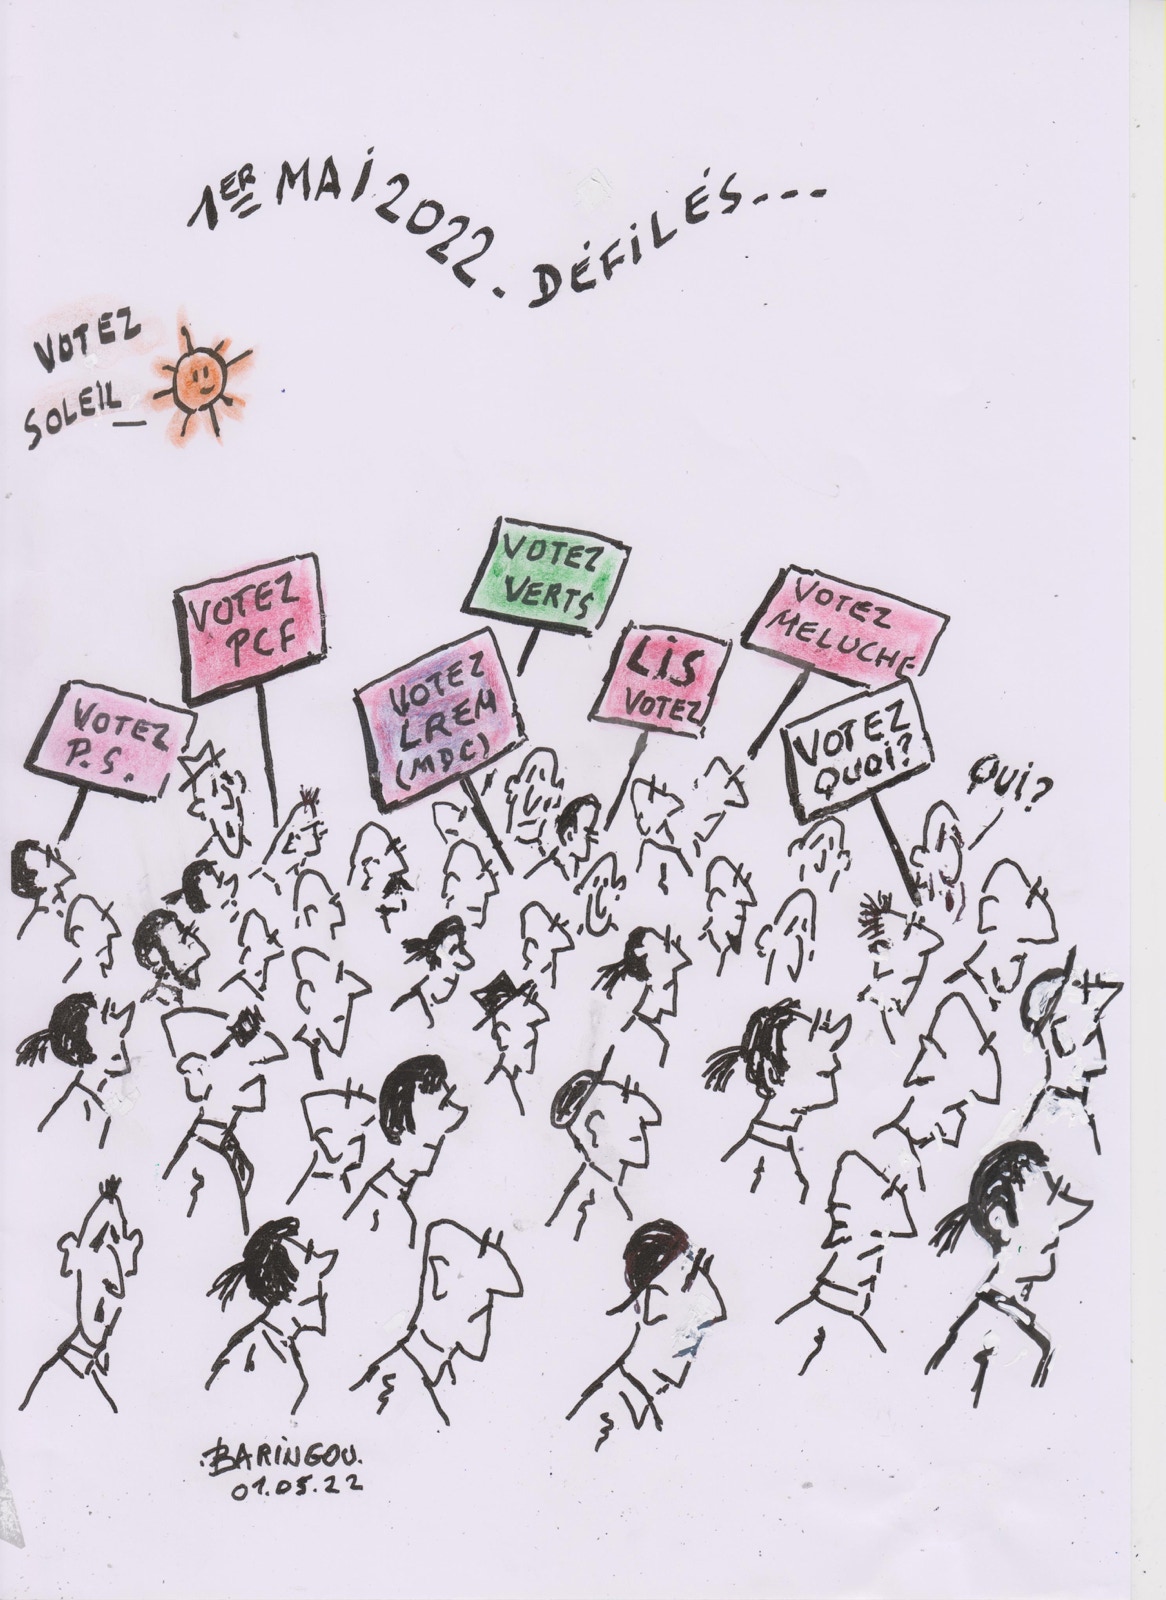 1ER MAI 2022. DÉFILÉS...
VOTEZ
SOLEIL
VOTEZ
VERTS
VOTEZ
PCF
VOTEZ
MELUCHE
LIS
VOTEZ
VOTEZ
LREM
(MDC)
VOTEZ
P.S.
VOTEZ
QUOI?
QUI?
.BARINGOU.
01.05.22